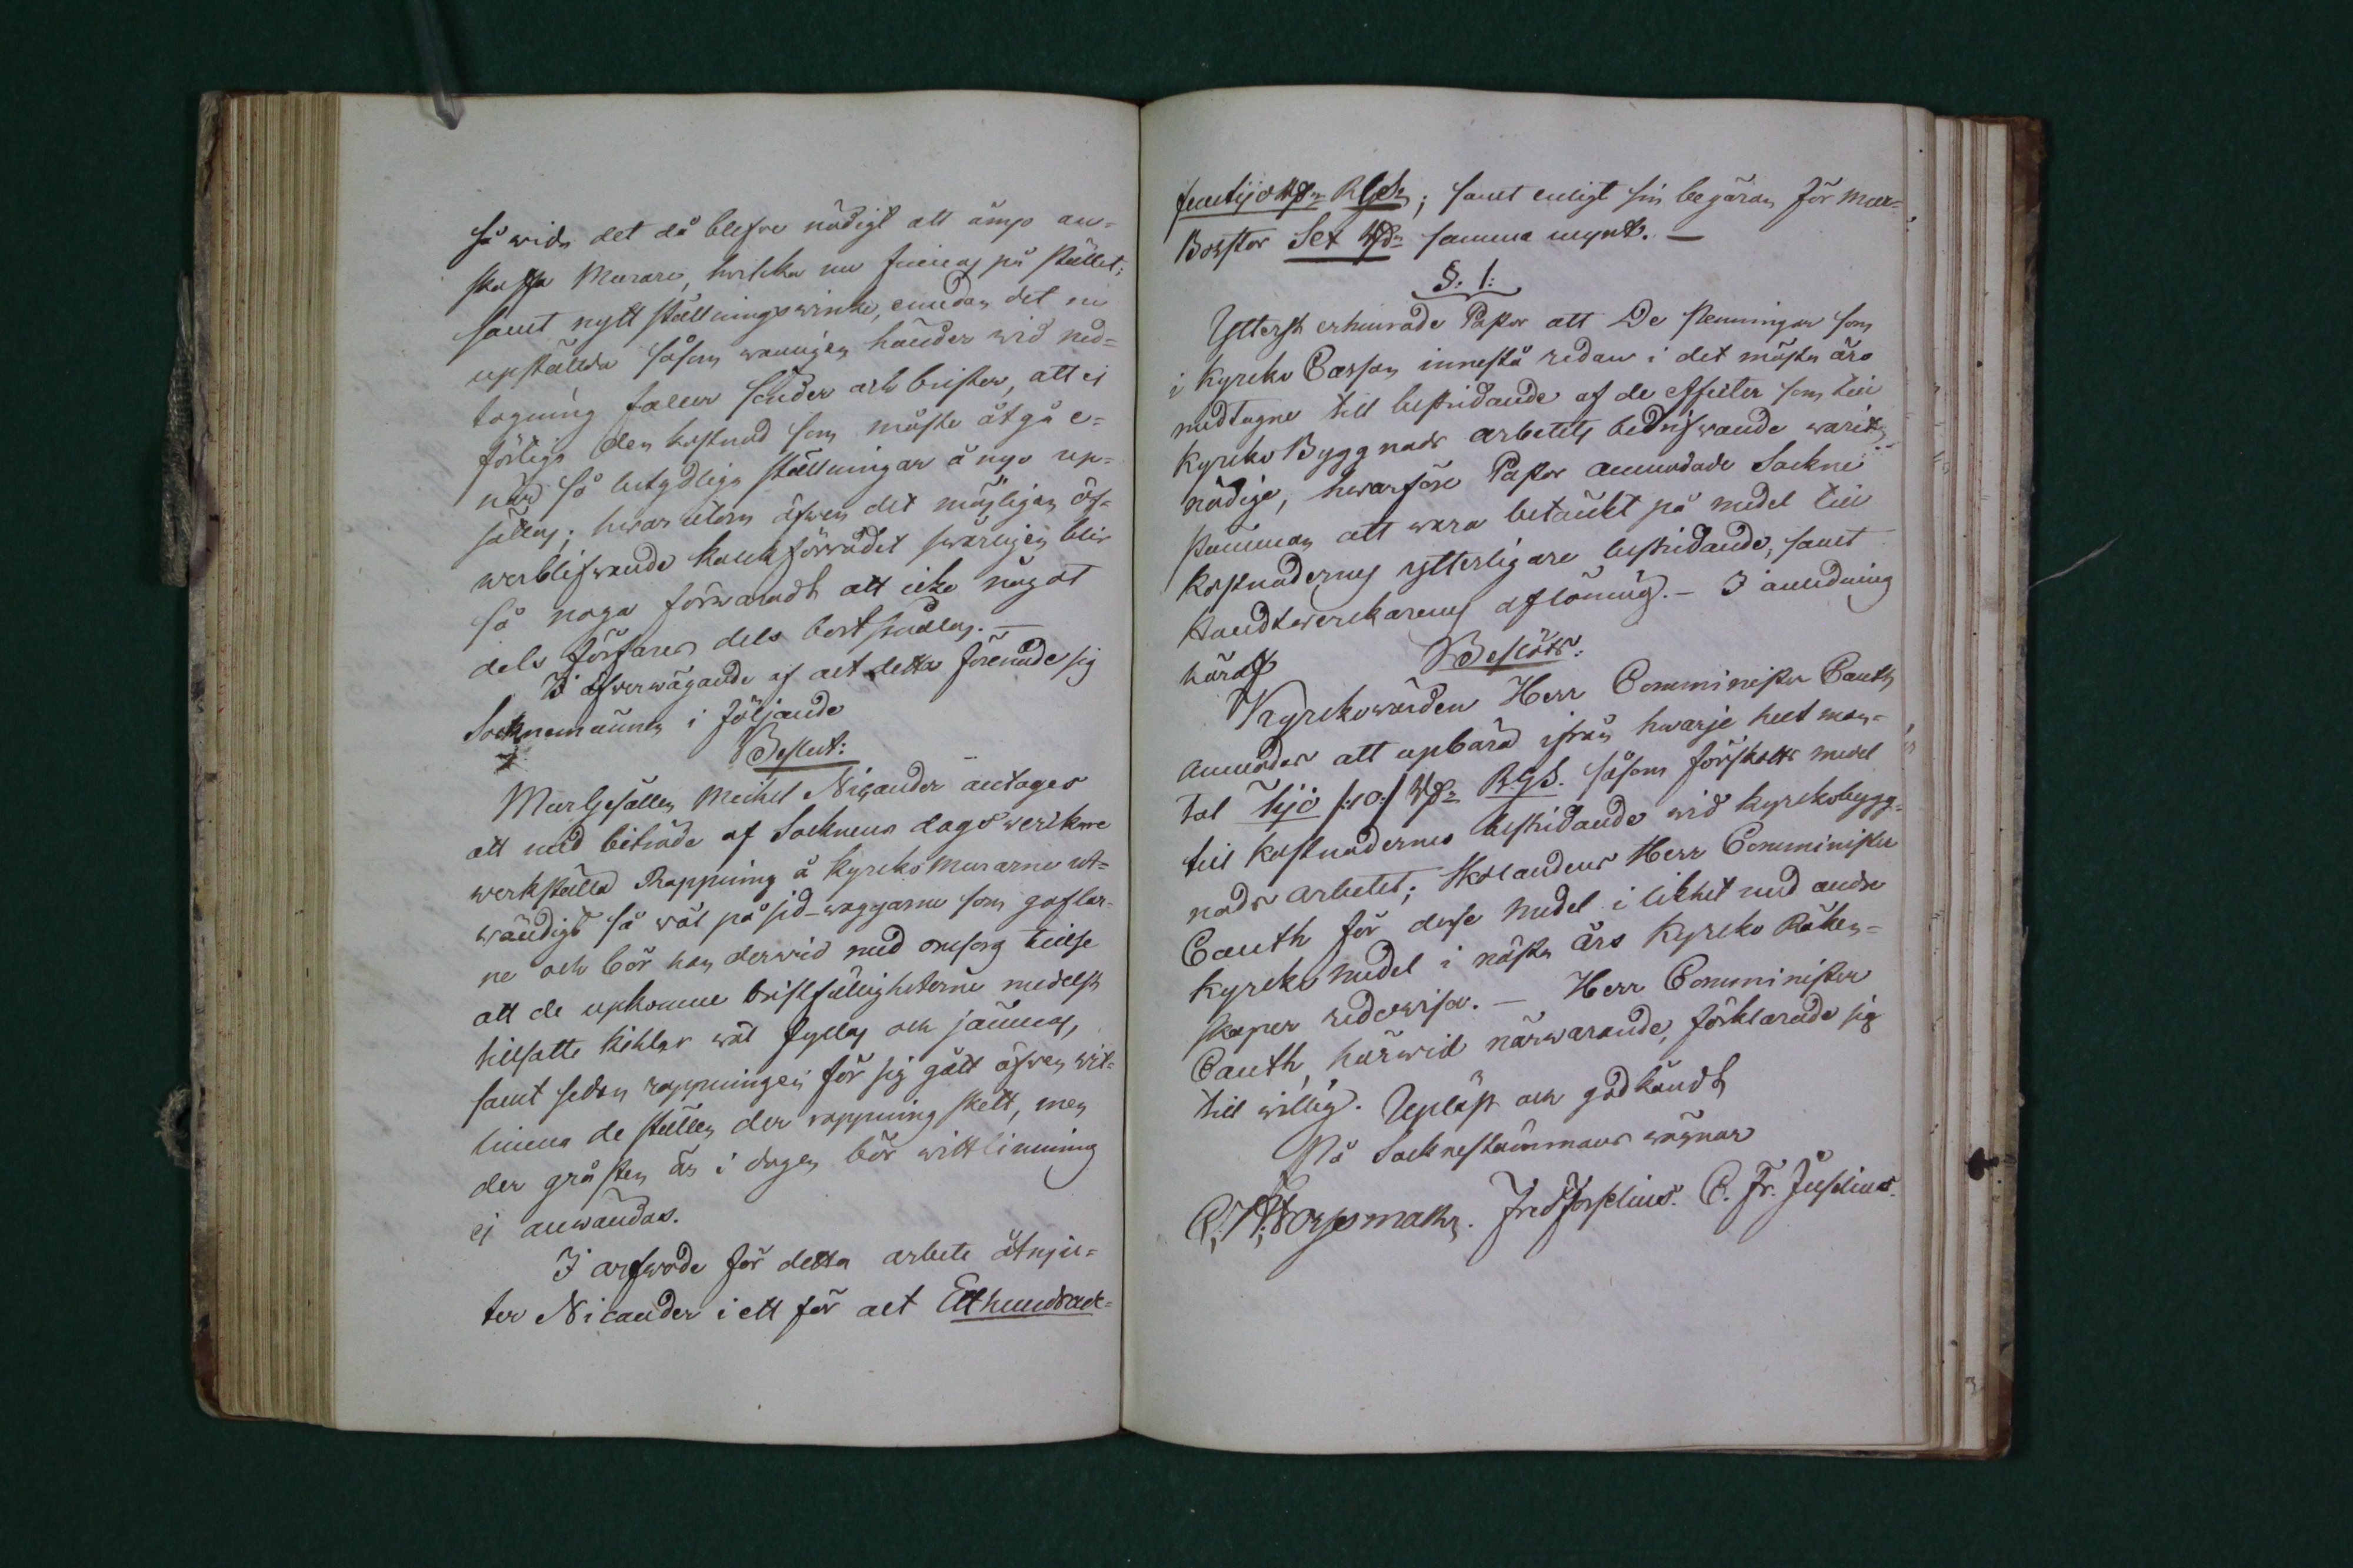 så wida det då blefve nödigt att ånyo an-
skaffa Murare, hwilka nu finnas på stället;
samt nytt ställningswirke, emedan det nu
upställda såsom wanligen händer wid ned-
tagning faller sönder och brister, att ej
förtiga den kostnad som måste åtgå e-
når så betydliga ställningar å nyo up-
sättas; hwarutom äfwen det möjligen öf-
werblifwande kalkförrådet swårligen blir
så noga förwaradt att icke något
dels förfares dels bortsnillas. —
I öfverwägande af alt detta förenade sig
Socknemännen i följande
Beslut:
MurGesällen Michel Nicander antages
att med biträde af Socknens dagswerkare
werkställa Rappning å KyrkoMurarne ut-
wändigt så wäl på sid-wäggarne som gaflar-
ne och bör han derwid med omsorg tillse
att de upkomne bristfälligheterne medelst
tilsatte kihlar wäl fyllas och jämnas,
samt sedan rappningen för sig gått äfwen hwit-
limma de ställen der rappning skett, men
der gråsten är i dagen bör hwittlimning
ej anwändas.
I arfwode för detta arbete åtnju-
ter Nicander i ett för alt Etthundrade-
femtijo Rd: RGds; samt enligt sin begäran för Mur-
Borstar Sex Rd: samma mynt. —
§. 1:
Ytterst erhinrade Pastor att De Penningar som
i Kyrko Cassan innestå redan i det mästa äro
medtagne till bestridande af de utgifter som till
Kyrko Byggnads arbetets bedrifwande warit
nödige, hwarföre Pastor anmodade Sockne
stämman att wara betänkt på medel till
kostnadernes ytterligare bestridande, samt
Handtwerkarenes aflöning. — I anledning
häraf Beslöts:
Kyrkowärden Herr Comminister Canth
anmodas att upbära ifrån hwarje helt man-
tal Tijo /:10:/ Rd: R.Gds. såsom förskotts medel
till kostnadernes bestridande wid kyrkobygg-
nads arbetet; Skolandes Herr Comminister
Canth för desse medel i likhet med andre
kyrko medel i nästa års Kyrko Räken-
skaper redowisa. — Herr Comminister
Canth, härwid närwarande, förklarade sig
till willig. Upläst och godkändt
På Socknestämmans wägnar
C. H. Forsman. Fred Forselius. C. Fr. Juselius.